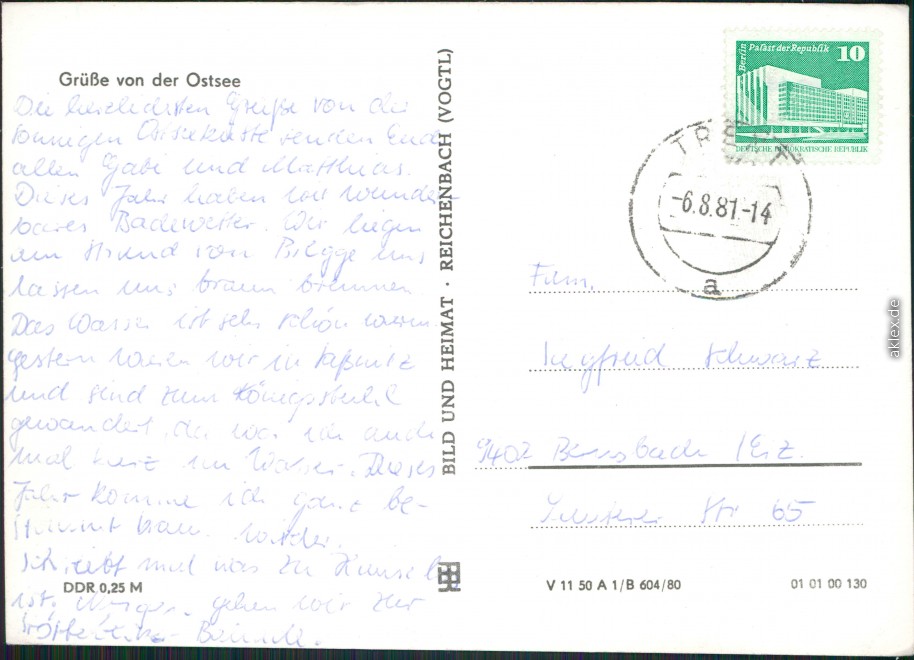 Grüße von der Ostsee
Die herzlichsten Grüße von der
sonnigen Ostseeküste senden Euch
allen Gabi und Matthias.
Dieses Jahr haben wir wunder-
bares Badewetter. Wir liegen
am Strand von und
lassen uns braun brennen
Das Wasser ist sehr schön warm.
gestern waren wir in Saßnitz
und sind zum Königsstuhl
gewandert, da war ich auch
mal kurz im Wasser. Dieses
Jahr komme ich ganz be-
stimmt braun wieder.
Schreibt mal was
ist. Morgen gehen wir zur
DDR 0,25 M
BILD UND HEIMAT · REICHENBACH (VOGTL)
Berlin Palast der Republik 10
DEUTSCHE DEMOKRATISCHE REPUBLIK
-6.8.81-14
a
Fam.
Siegfried Schwarz
9402 Bernsbach /Erz.
Str 65
V 11 50 A 1/B 604/80
01 01 00 130
aklex.de